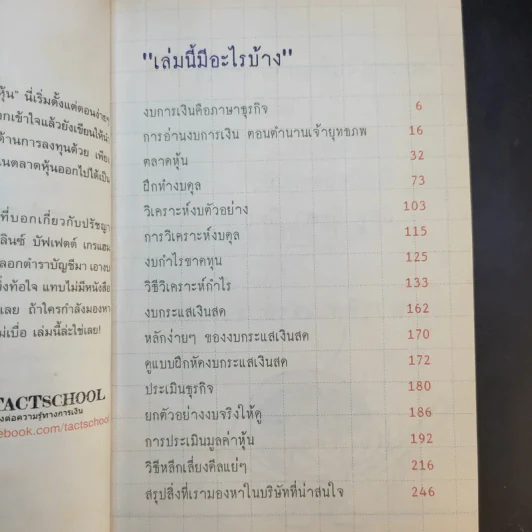 หุ้น" นี่เริ่มตั้งแต่ตอนง่ายๆ
ด้านการลงทุนด้วย เพียง
นตลาดหุ้นออกไปได้เป็น
ที่บอกเกี่ยวกับปรัชญา
ลินซ์ บัฟเฟตต์ เกรแฮม
ลอกตำราบัญชีมา เอางบ
ท้อใจ แทบไม่มีหนังสือ
เลย ถ้าใครกำลังมองหา
ม่เบื่อ เล่มนี้ล่ะใช่เลย!
TACTSCHOOL
ต่อความรู้ทางการเงิน
ebook.com/tactschool
"เล่มนี้มีอะไรบ้าง"
งบการเงินคือภาษาธุรกิจ 6
การอ่านงบการเงิน ตอนตำนานเจ้ายุทธภพ 16
ตลาดหุ้น 32
ฝึกทำงบดุล 73
วิเคราะห์งบตัวอย่าง 103
การวิเคราะห์งบดุล 115
งบกำไรขาดทุน 125
วิธีวิเคราะห์กำไร 133
งบกระแสเงินสด 162
หลักง่ายๆ ของงบกระแสเงินสด 170
ดูแบบฝึกหัดงบกระแสเงินสด 172
ประเมินธุรกิจ 180
ยกตัวอย่างงบจริงให้ดู 186
การประเมินมูลค่าหุ้น 192
วิธีหลีกเลี่ยงดีลแย่ๆ 216
สรุปสิ่งที่เรามองหาในบริษัทที่น่าสนใจ 246